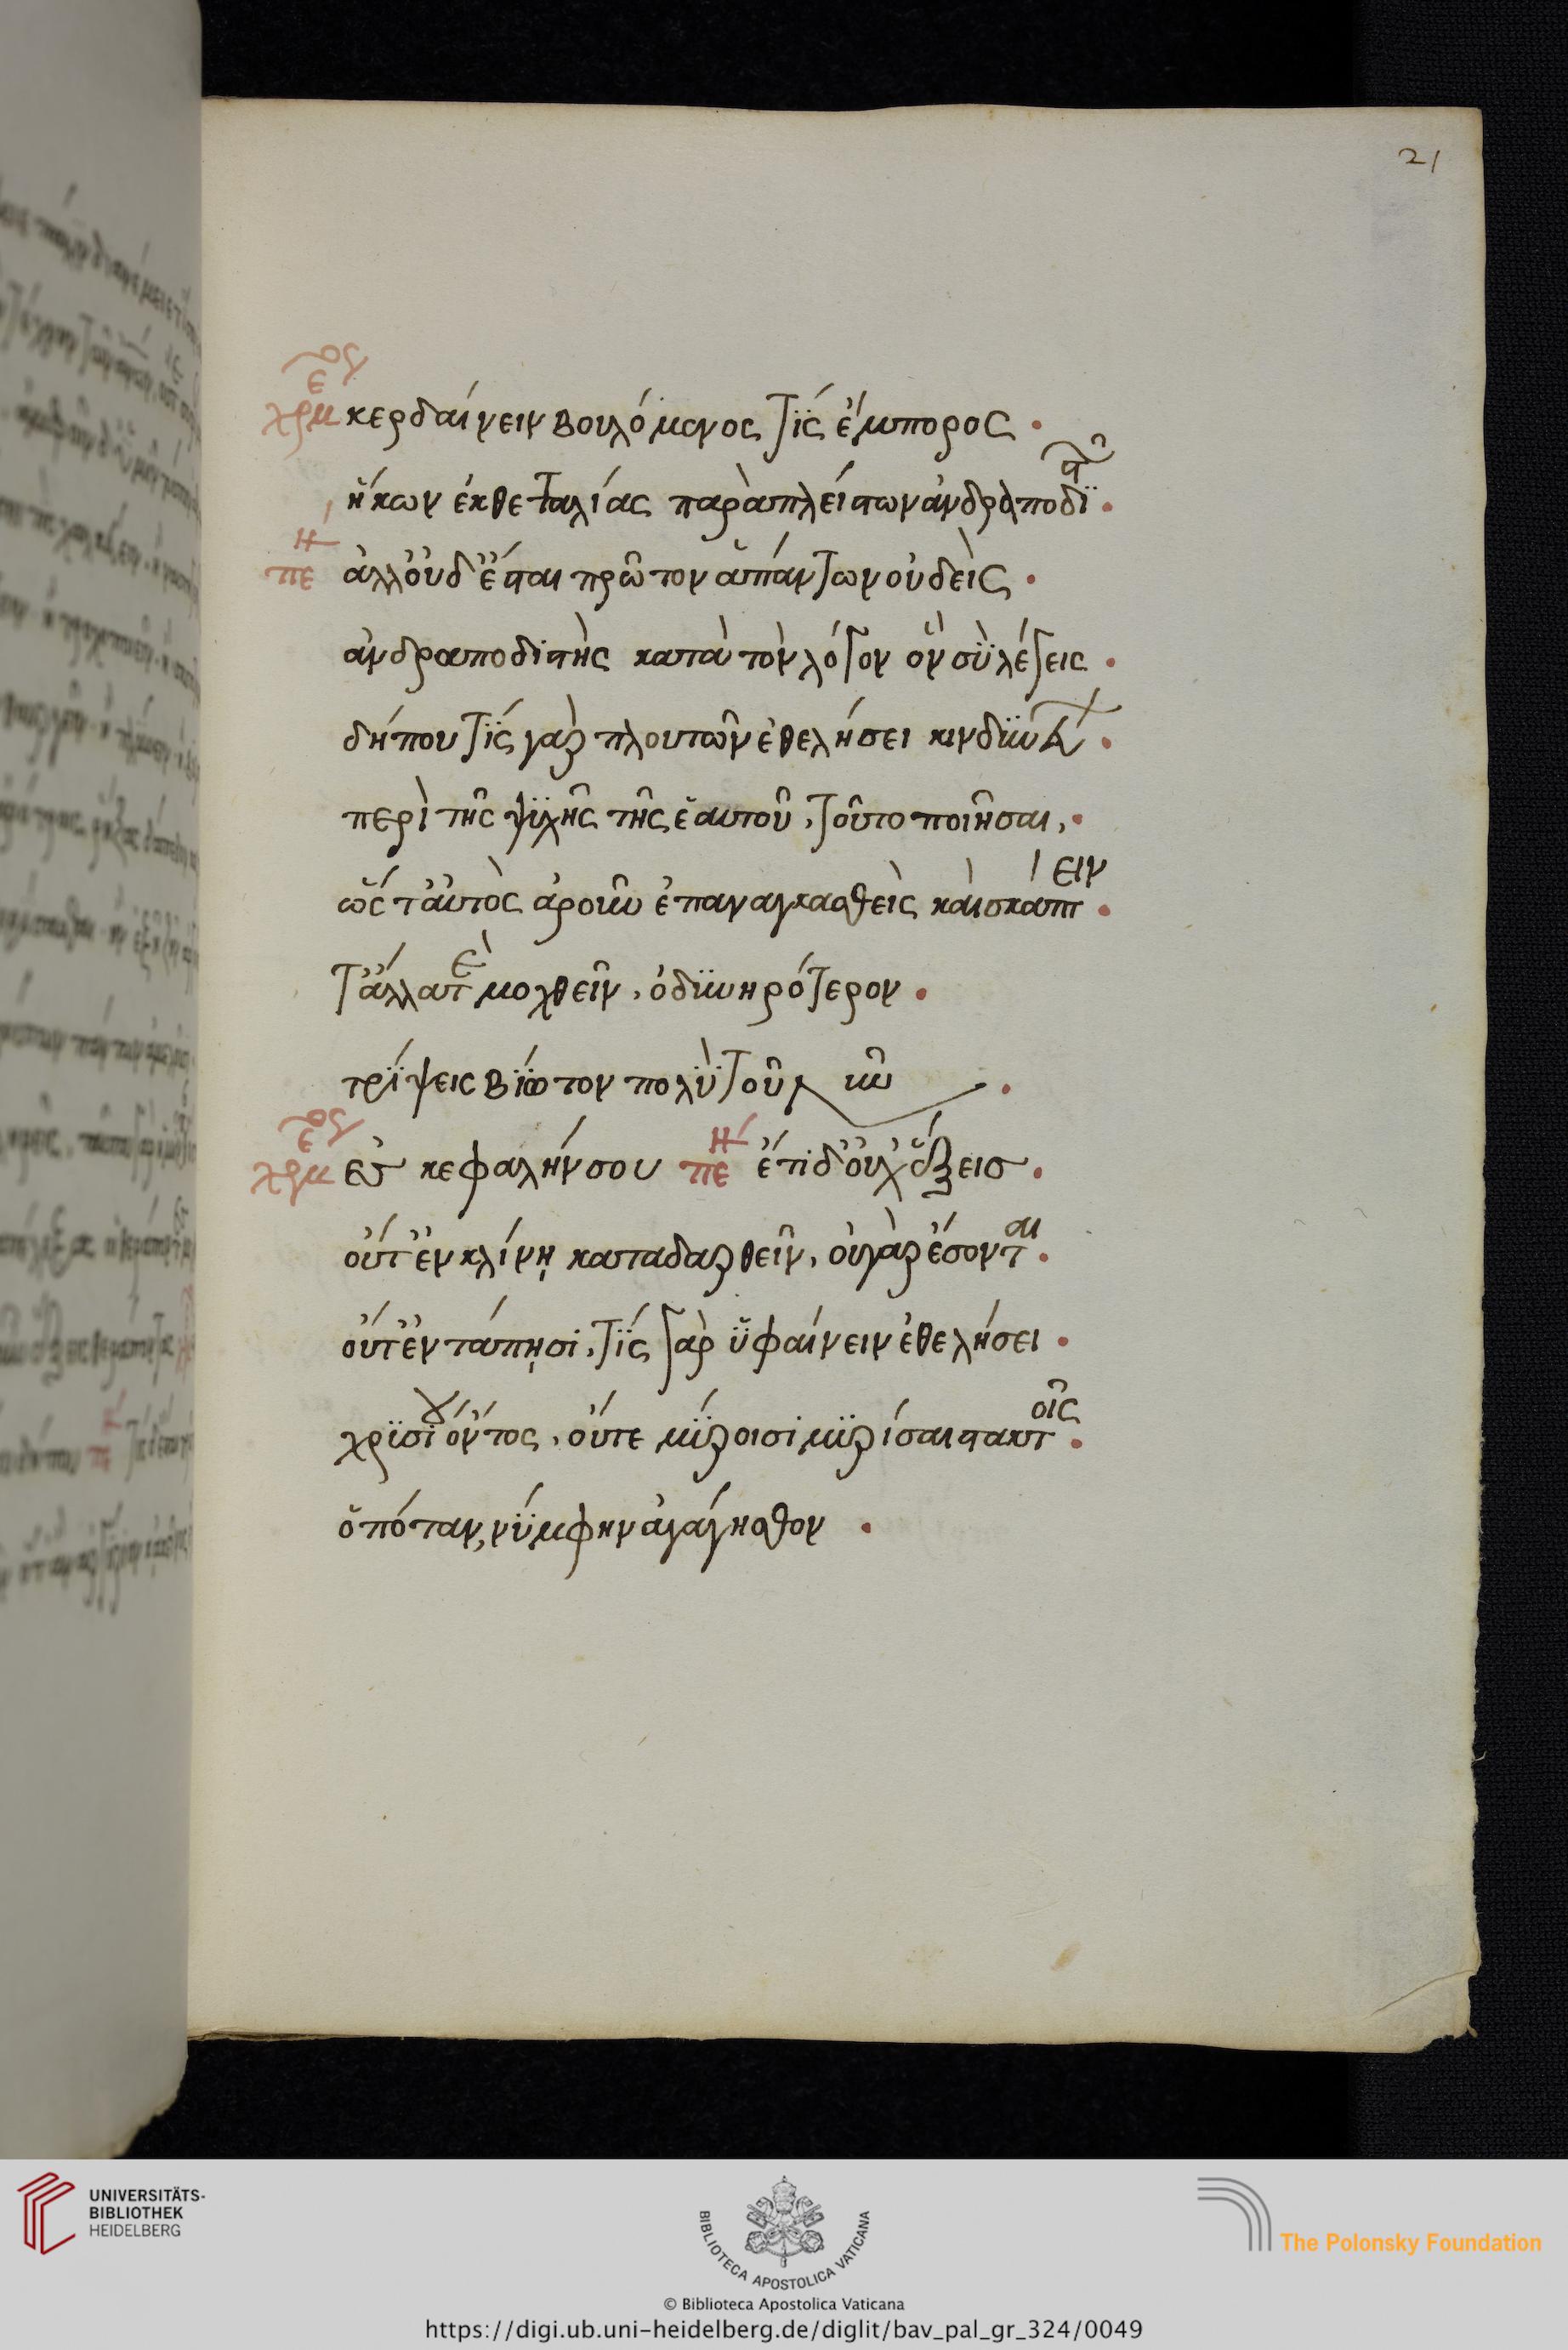 21
χρεμ κερδαίνειν βουλόμενος τϊς έμπορος .
ἥκων ἐκ θετταλίας παρὰ πλείστων ἀνδραποδϊστῶν .
πεν ἀλλ' οὐδ' ἔσται πρῶτον ἁπάντων οὐδεὶς .
ἀνδραποδϊστὴς κατὰ τὸν λόγον ὃν σὺ λέγεις .
δήπου τίς γὰρ πλουτῶν ἐθελήσει κινδϋνεύων .
περὶ τῆς ψϋχῆς τῆς ἑαυτοῦ, τοῦτο ποιῆσαι, .
ὥστ' αὐτὸς ἀροῦν ἐπαναγκασθεὶς καὶ σκάπτειν .
τἄλλά τε μοχθεῖν, ὀδϋνηρότερον .
τρίψεις βίοτον πολὺ τοῦ νῦν .
χρεμ ἐς κεφαλήν σου πεν ἔτι δ' οὐχ ἕξεις .
οὔτ' ἐν κλίνῃ καταδαρθεῖν, οὐ γὰρ ἔσονται .
οὔτ' ἐν τάπησι, τίς γὰρ ὑφαίνειν ἐθελήσει .
χρϋσίου ὄντος, οὔτε μύροισι μϋρίσαι στακτοῖς .
ὁπόταν, νύμφην ἀγάγησθον .
UNIVERSITÄTS-
BIBLIOTHEK
HEIDELBERG
BIBLIOTECA APOSTOLICA VATICANA
The Polonsky Foundation
© Biblioteca Apostolica Vaticana
https://digi.ub.uni-heidelberg.de/diglit/bav_pal_gr_324/0049